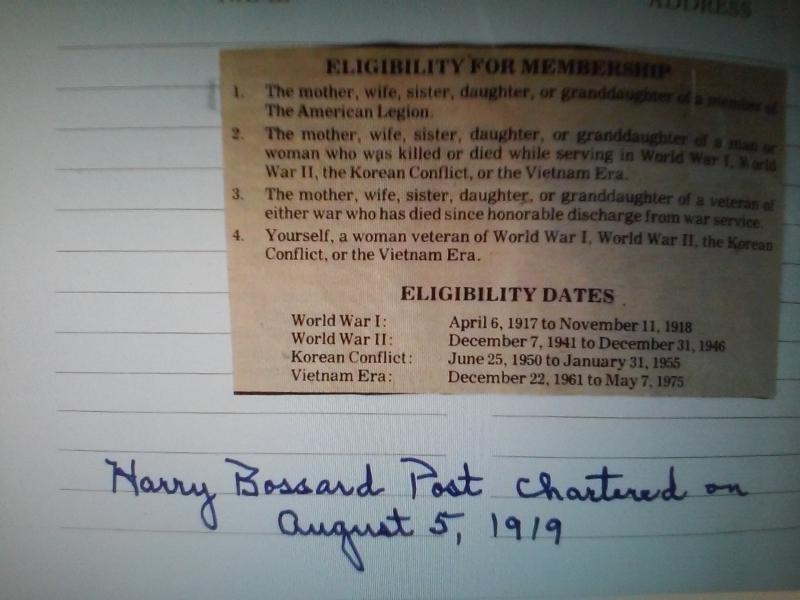 NAME ADDRESS
ELIGIBILITY FOR MEMBERSHIP
1. The mother, wife, sister, daughter, or granddaughter of a member of
The American Legion.
2. The mother, wife, sister, daughter, or granddaughter of a man or
woman who was killed or died while serving in World War I, World
War II, the Korean Conflict, or the Vietnam Era.
3. The mother, wife, sister, daughter, or granddaughter of a veteran of
either war who has died since honorable discharge from war service.
4. Yourself, a woman veteran of World War I, World War II, the Korean
Conflict, or the Vietnam Era.
ELIGIBILITY DATES
World War I: April 6, 1917 to November 11, 1918
World War II: December 7, 1941 to December 31, 1946
Korean Conflict: June 25, 1950 to January 31, 1955
Vietnam Era: December 22, 1961 to May 7, 1975
Harry Bossard Post chartered on
August 5, 1919